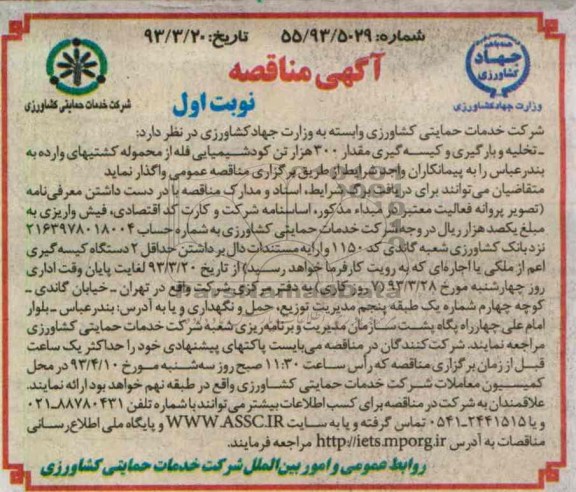 شماره: ۵۵/۹۳/۵۰۲۹ تاریخ: ۹۳/۳/۲۰
همه با هم
جهاد
کشاورزی
وزارت جهاد کشاورزی
آگهی مناقصه
نوبت اول
شرکت خدمات حمایتی کشاورزی
شرکت خدمات حمایتی کشاورزی وابسته به وزارت جهاد کشاورزی در نظر دارد:
ـ تخلیه و بارگیری و کیسه گیری مقدار ۳۰۰ هزار تن کود شیمیایی فله از محموله کشتیهای وارده به
بندرعباس را به پیمانکاران واجد شرایط از طریق برگزاری مناقصه عمومی واگذار نماید
متقاضیان می‌توانند برای دریافت برگ شرایط، اسناد و مدارک مناقصه با در دست داشتن معرفی‌نامه
(تصویر پروانه فعالیت معتبر در مبداء مذکور، اساسنامه شرکت و کارت کد اقتصادی، فیش واریزی به
مبلغ یکصد هزار ریال در وجه شرکت خدمات حمایتی کشاورزی به شماره حساب ۲۱۶۳۹۷۸۰۱۸۰۰۴
نزد بانک کشاورزی شعبه گاندی کد ۱۱۵۰ و ارایه مستندات دال بر داشتن حداقل ۲ دستگاه کیسه گیری
اعم از ملکی یا اجاره‌ای که به رویت کارفرما خواهد رسید) از تاریخ ۹۳/۳/۲۰ لغایت پایان وقت اداری
روز چهارشنبه مورخ ۹۳/۳/۲۸ (۷ روز کاری) به دفتر مرکزی شرکت واقع در تهران ـ خیابان گاندی ـ
کوچه چهارم شماره یک طبقه پنجم مدیریت توزیع، حمل و نگهداری و یا به آدرس: بندرعباس ـ بلوار
امام علی چهارراه پگاه پشت سازمان مدیریت و برنامه ریزی شعبه شرکت خدمات حمایتی کشاورزی
مراجعه نمایند. شرکت کنندگان در مناقصه می‌بایست پاکتهای پیشنهادی خود را حداکثر یک ساعت
قبل از زمان برگزاری مناقصه که رأس ساعت ۱۱:۳۰ صبح روز سه‌شنبه مورخ ۹۳/۴/۱۰ در محل
کمیسیون معاملات شرکت خدمات حمایتی کشاورزی واقع در طبقه نهم خواهد بود ارائه نمایند.
علاقمندان به شرکت در مناقصه برای کسب اطلاعات بیشتر می‌توانند با شماره تلفن ۸۸۷۸۰۴۳۱-۰۲۱
و یا ۲۴۴۱۵۱۵-۰۵۴۱ تماس گرفته و یا به سایت WWW.ASSC.IR و پایگاه ملی اطلاع رسانی
مناقصات به آدرس http://iets.mporg.ir مراجعه فرمایند.
روابط عمومی و امور بین الملل شرکت خدمات حمایتی کشاورزی